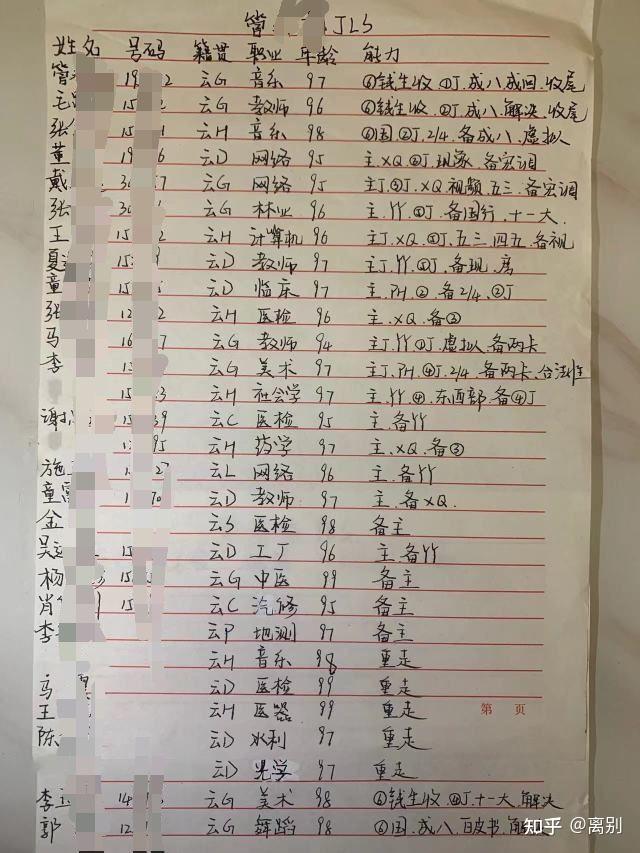 管 JLS
姓名 号码 籍贯 职业 年龄 能力
管 19 2 云G 音乐 97 ⑥钱生收.①J.成八.成回.收尾
毛 15 2 云G 教师 96 ⑥钱生收.②J.成八.解决.收尾
张 15 1 云H 音乐 98 ⑥国.②J.2/4.备成八.虚拟
董 19 6 云D 网络 95 主.XQ.②J.现象.备宏调
戴 30 57 云G 网络 95 主J.③J.XQ.视频.五三.备宏调
张 30 6 云G 林业 96 主.竹.①J.备国行.十一大.
王 15 2 云H 计算机 96 主J.XQ.①J.五三.四五.备视
夏 15 9 云D 教师 97 主J.竹.②J.备现.房
童 15 5 云D 临床 97 主.PH.②.备2/4.②J
张 12 2 云H 医检 96 主.XQ.备②
马 16 7 云G 教师 94 主J.竹.①J.虚拟.备两卡
李 13 云G 美术 97 主J.PH.④J.2/4.备两卡.合法性
15 3 云H 社会学 97 主.竹.④.东西部.备④J
谢 15 39 云C 医检 95 主.备竹
1 95 云H 药学 97 主.XQ.备③
施 1 27 云L 网络 96 主.备竹
童 1 70 云D 教师 97 主.备XQ.
金 云S 医检 98 备主
吴 15 云D 工厂 96 主.备竹
杨 15 云G 中医 99 备主
肖 15 云C 汽修 95 备主
李 云P 地测 97 备主
云H 音乐 98 重走
马 云D 医检 99 重走
王 云H 医器 99 重走
第 页
陈 云D 水利 97 重走
云D 光学 97 重走
李 14 云G 美术 98 ⑥钱生收.④J.十一大.解决
郭 12 云G 舞蹈 98 ⑥国.成八.白皮书.解
知乎 @离别